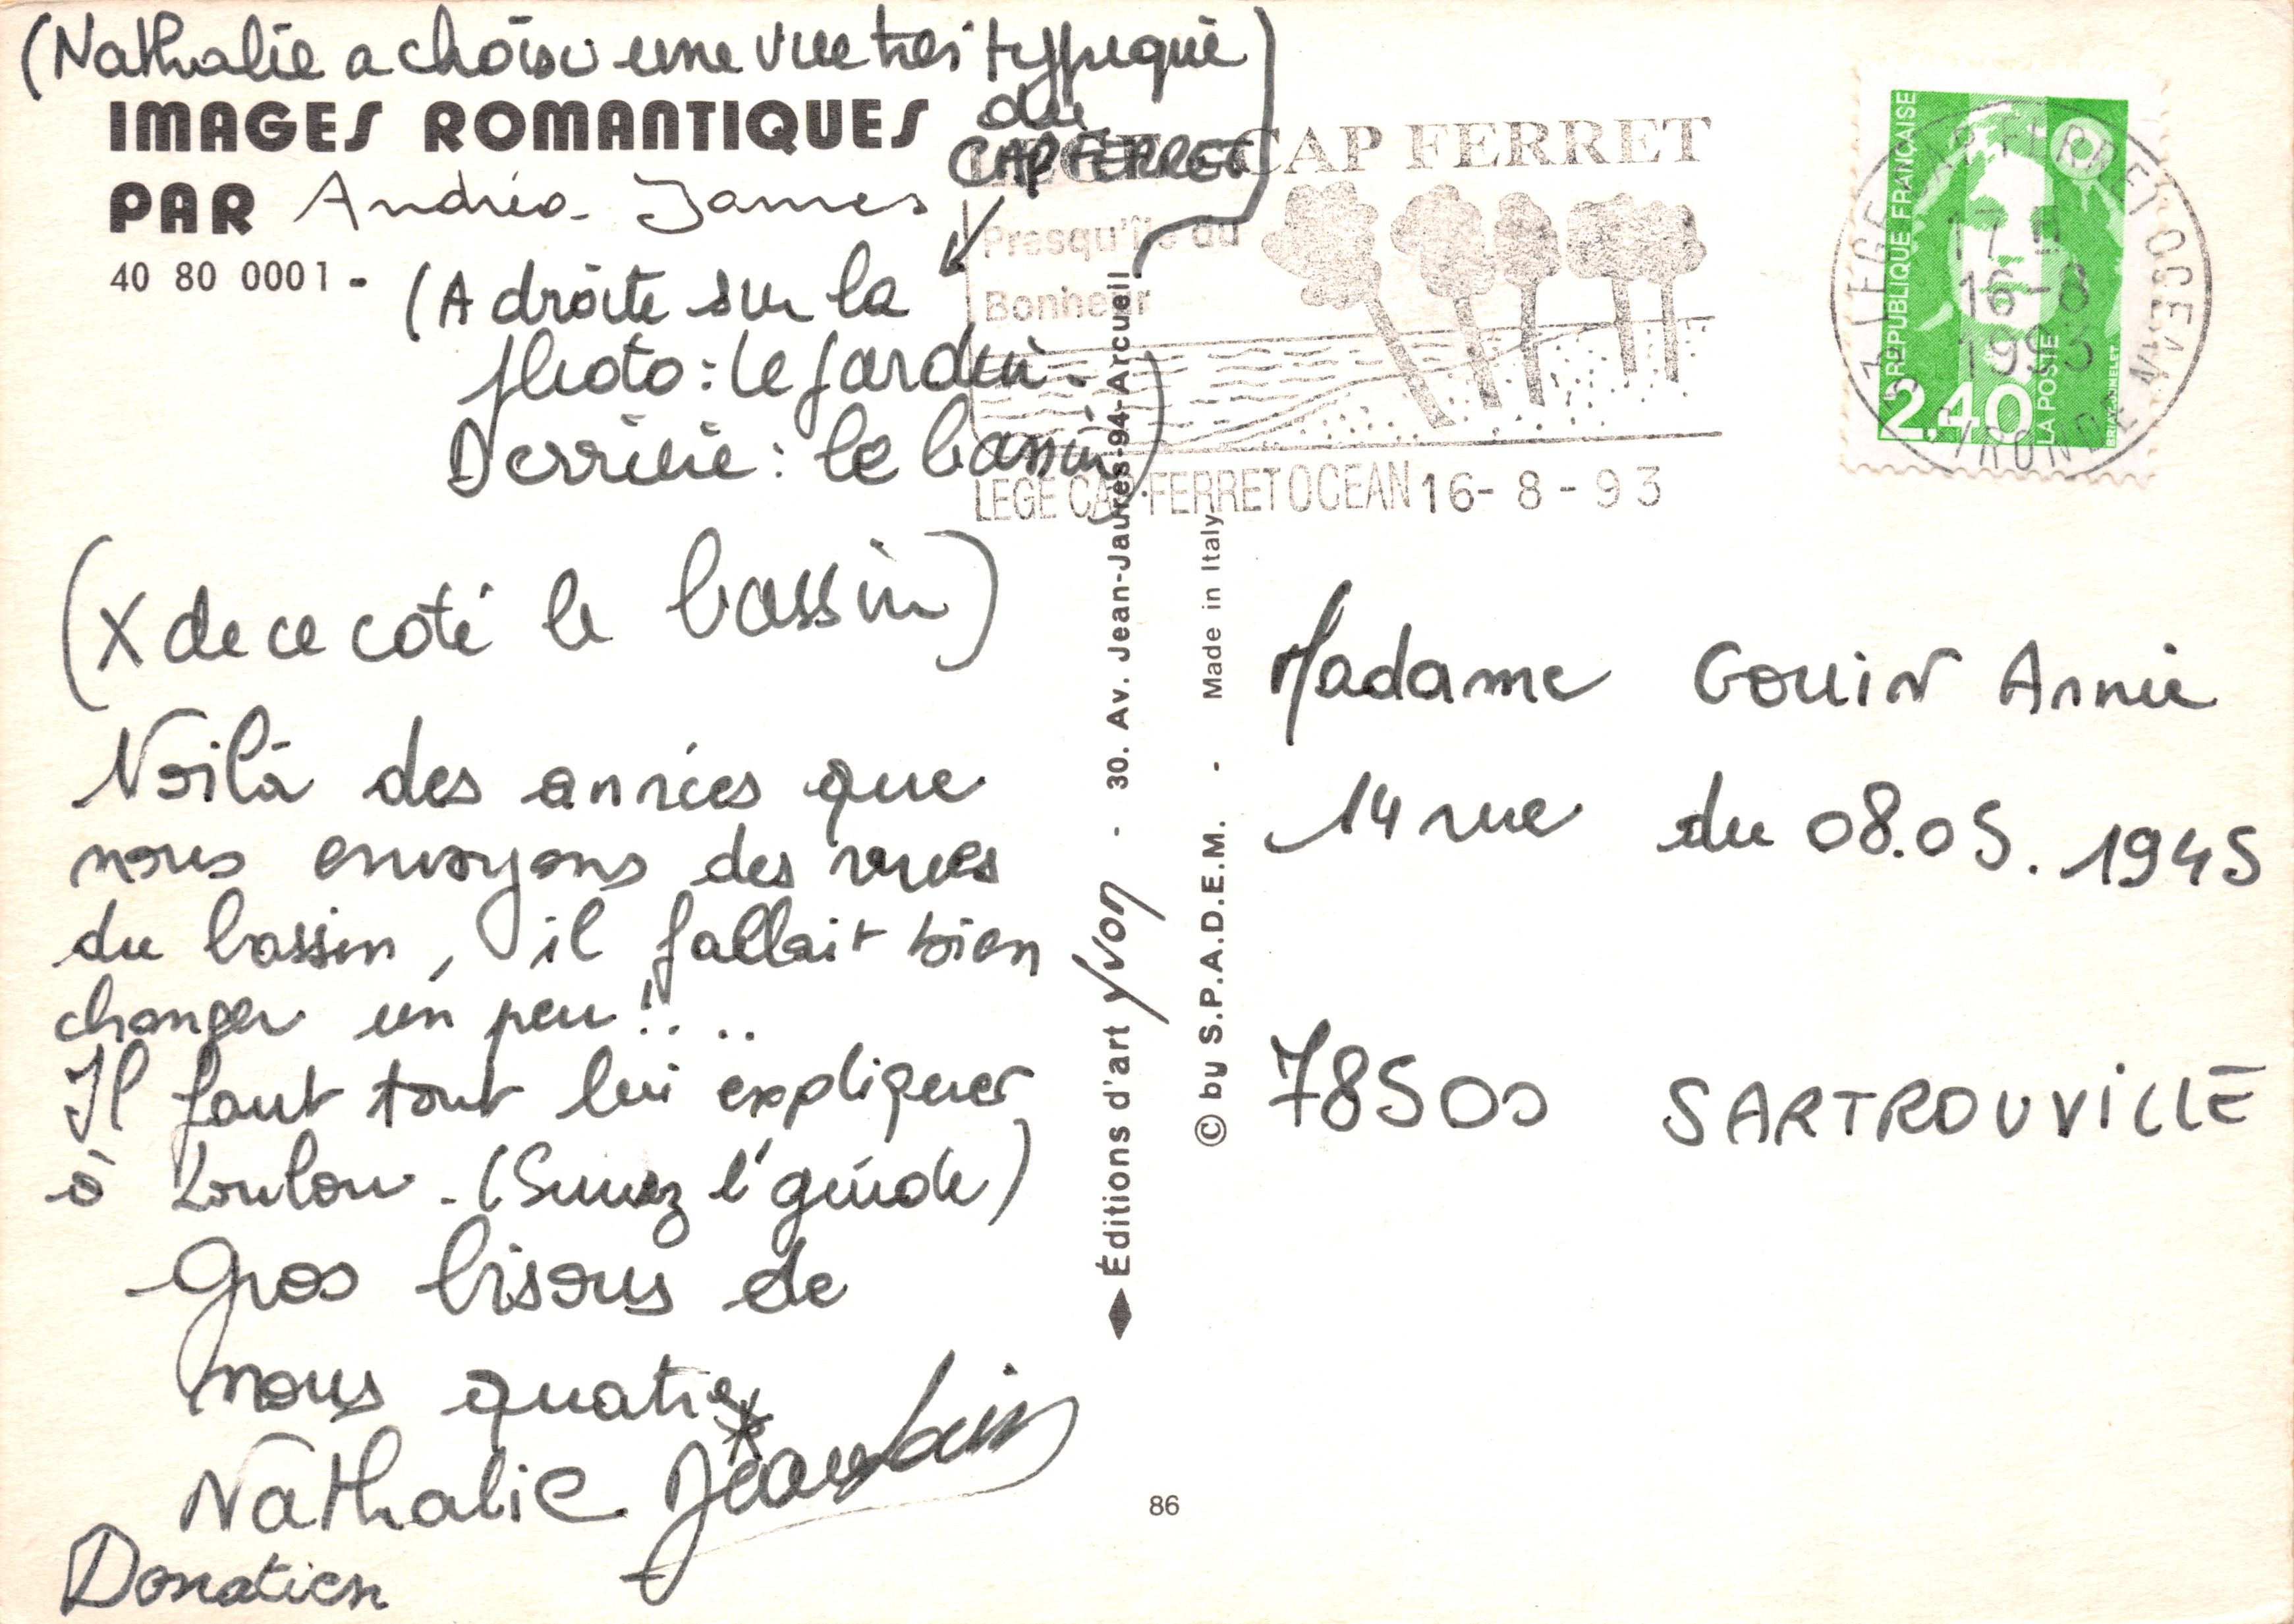 (Nathalie a choisi une vue très typique
du
CAP FERRET)
IMAGES ROMANTIQUES
PAR Andréa James
40 80 0001 -
(A droite sur la
photo : le jardin.
Derrière : le bassin)
(X de ce coté le bassin)
Voilà des années que
nous envoyons des vues
du bassin, il fallait bien
changer un peu !...
Il faut tout lui expliquer
à Loulou. (Suivez l'guide)
Gros bisous de
nous quatre
Nathalie
Donatien
Éditions d'art Yvon - 30. Av. Jean-Jaurès-94-Arcueil
© by S.P.A.D.E.M. - Made in Italy
86
CAP FERRET
Presqu'île du
Bonheur
LEGE CAP-FERRET OCEAN 16-8-93
REPUBLIQUE FRANÇAISE
2,40
LA POSTE
BRIAT-JUMELET
33 LEGE CAP FERRET OCEAN
17 H
16-8
1993
GIRONDE
Madame GOUIN Annie
14 rue du 08.05.1945
78500 SARTROUVILLE